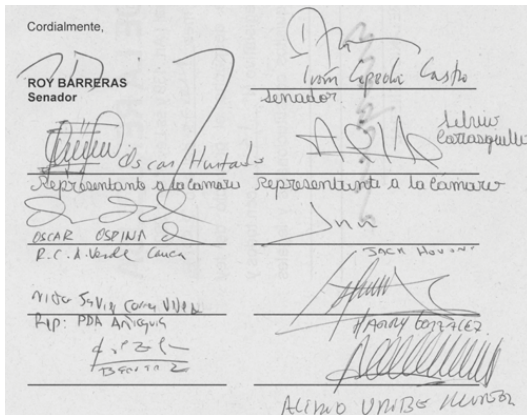 Cordialmente,
ROY BARRERAS
Senador
Iván Cepeda Castro
Senador
Oscar Hurtado
Representante a la Cámara
Silvio
Carrasquilla
Representante a la Cámara
OSCAR OSPINA
R.C. A. Verde Cauca
JACK HOUSNI
Victor Javier Correa Vélez
Rep: PDA Antioquia
HARRY GONZALEZ
ALIRIO URIBE MUÑOZ